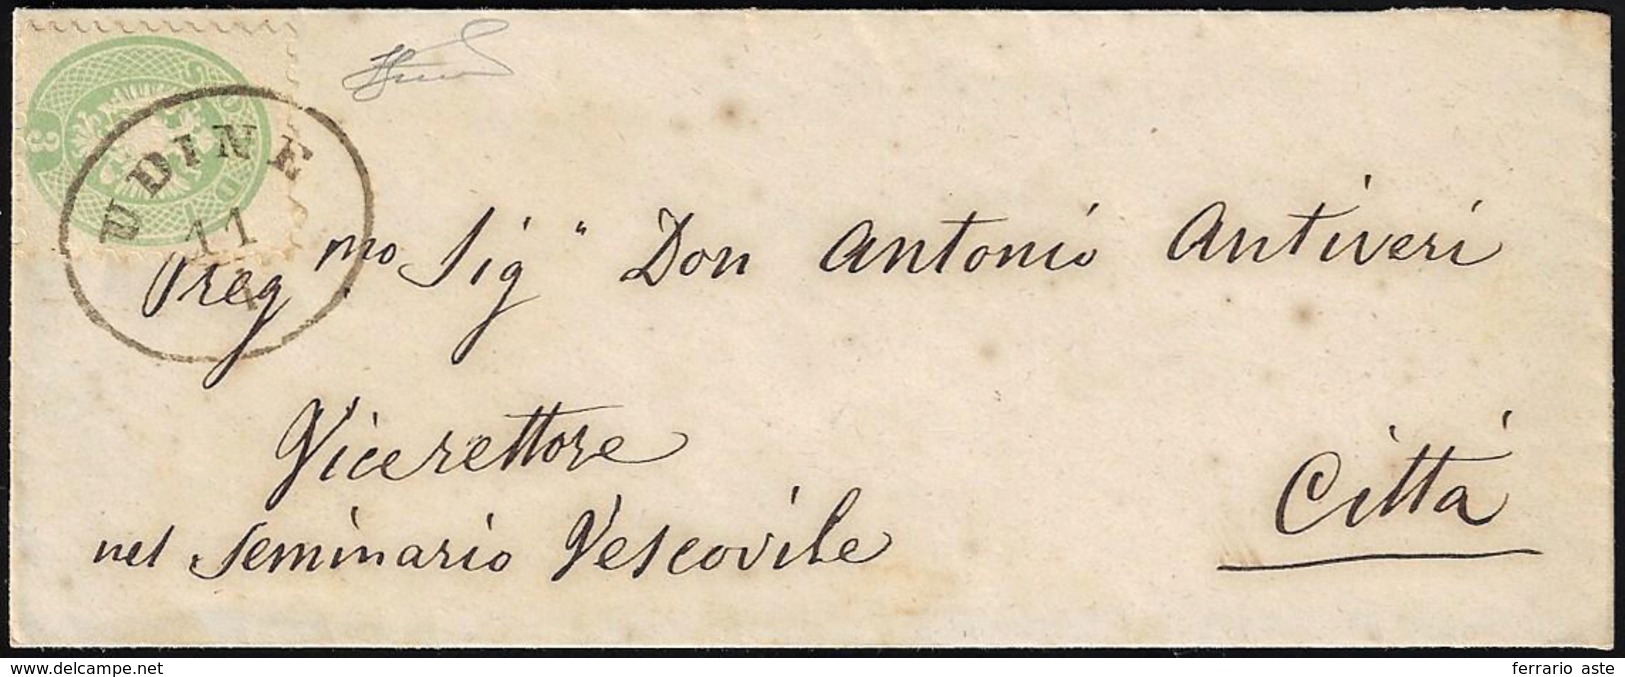 3 SOLDI
UDINE
11
1
Preg mo Sig" Don Antonio Antiveri
Vicerettore
nel Seminario Vescovile
Città
www.delcampe.net
ferrario aste